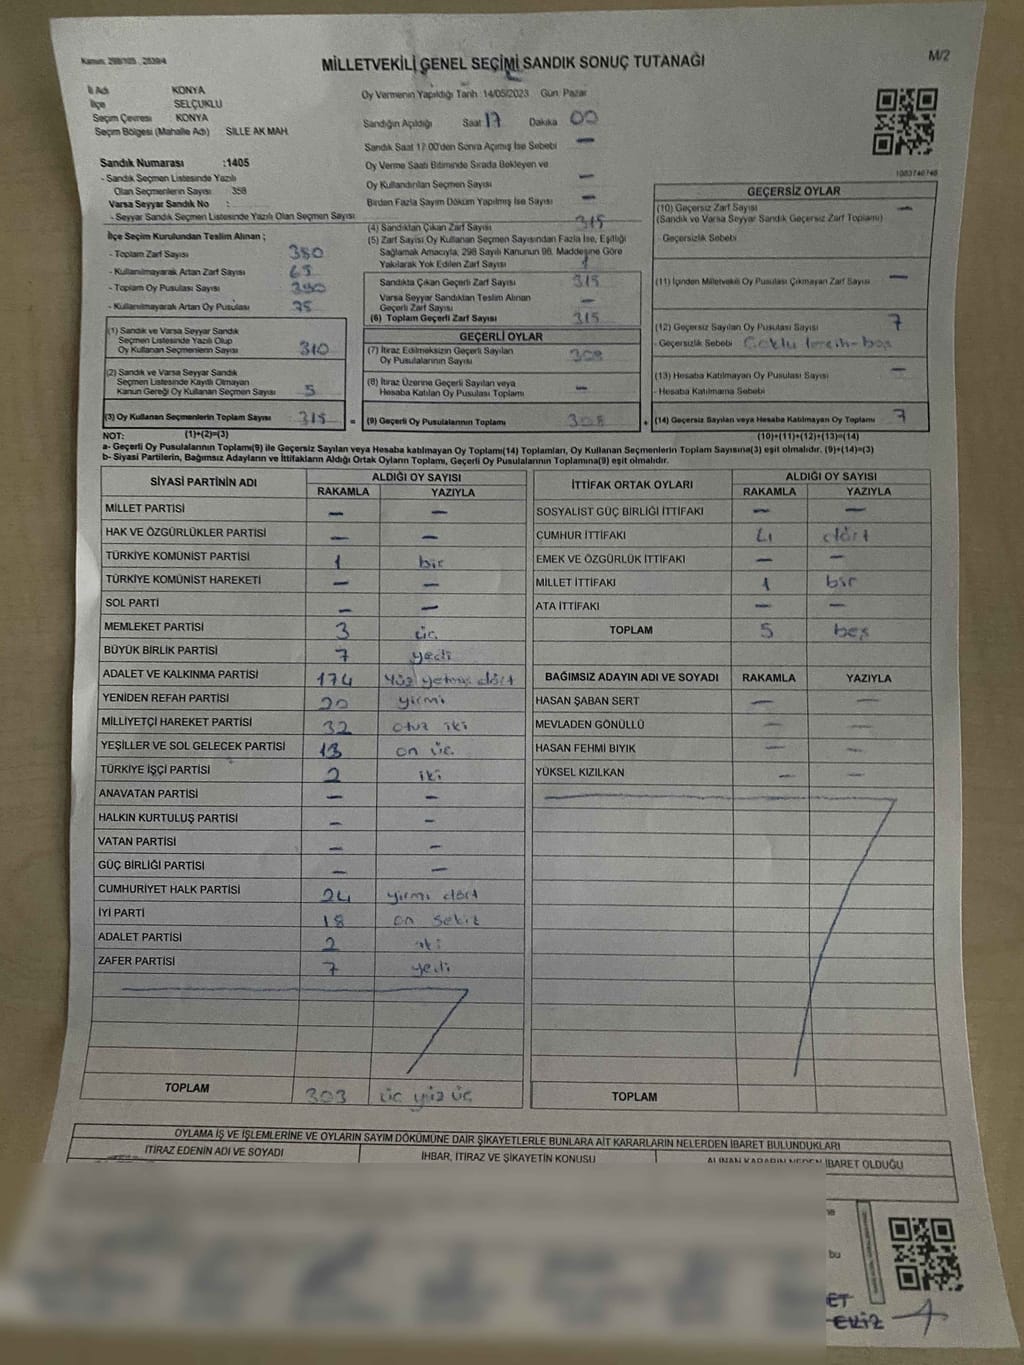 Kanun: 298/105 , 2839/4
MİLLETVEKİLİ GENEL SEÇİMİ SANDIK SONUÇ TUTANAĞI
M/2
İl Adı KONYA
İlçe SELÇUKLU
Seçim Çevresi : KONYA
Seçim Bölgesi (Mahalle Adı) SİLLE AK MAH.
Oy Vermenin Yapıldığı Tarih :14/05/2023 Gün: Pazar
Sandığın Açıldığı Saat 17 Dakika 00
Sandık Saat 17:00'den Sonra Açımış İse Sebebi —
Oy Verme Saati Bitiminde Sırada Bekleyen ve
Oy Kullandırılan Seçmen Sayısı —
Birden Fazla Sayım Döküm Yapılmış İse Sayısı —
1083740748
Sandık Numarası :1405
- Sandık Seçmen Listesinde Yazılı
Olan Seçmenlerin Sayısı 358
Varsa Seyyar Sandık No :
- Seyyar Sandık Seçmen Listesinde Yazılı Olan Seçmen Sayısı
İlçe Seçim Kurulundan Teslim Alınan ;
- Toplam Zarf Sayısı 380
- Kullanılmayarak Artan Zarf Sayısı 65
- Toplam Oy Pusulası Sayısı 390
- Kullanılmayarak Artan Oy Pusulası 75
(1) Sandık ve Varsa Seyyar Sandık
Seçmen Listesinde Yazılı Olup
Oy Kullanan Seçmenlerin Sayısı 310
(2) Sandık ve Varsa Seyyar Sandık
Seçmen Listesinde Kayıtlı Olmayan
Kanun Gereği Oy Kullanan Seçmen Sayısı 5
(3) Oy Kullanan Seçmenlerin Toplam Sayısı 315 =
(4) Sandıktan Çıkan Zarf Sayısı 315
(5) Zarf Sayısı Oy Kullanan Seçmen Sayısından Fazla İse, Eşitliği
Sağlamak Amacıyla, 298 Sayılı Kanunun 98. Maddesine Göre
Yakılarak Yok Edilen Zarf Sayısı
Sandıkta Çıkan Geçerli Zarf Sayısı 315
Varsa Seyyar Sandıktan Teslim Alınan
Geçerli Zarf Sayısı —
(6) Toplam Geçerli Zarf Sayısı 315
GEÇERLİ OYLAR
(7) İtiraz Edilmeksizin Geçerli Sayılan
Oy Pusulalarının Sayısı 308
(8) İtiraz Üzerine Geçerli Sayılan veya
Hesaba Katılan Oy Pusulası Toplamı —
(9) Geçerli Oy Pusulalarının Toplamı 308 +
GEÇERSİZ OYLAR
(10) Geçersiz Zarf Sayısı —
(Sandık ve Varsa Seyyar Sandık Geçersiz Zarf Toplamı)
- Geçersizlik Sebebi
(11) İçinden Milletvekili Oy Pusulası Çıkmayan Zarf Sayısı —
(12) Geçersiz Sayılan Oy Pusulası Sayısı 7
- Geçersizlik Sebebi Çoklu tercih-boş
(13) Hesaba Katılmayan Oy Pusulası Sayısı —
- Hesaba Katılmama Sebebi
(14) Geçersiz Sayılan veya Hesaba Katılmayan Oy Toplamı 7
NOT: (1)+(2)=(3) (10)+(11)+(12)+(13)=(14)
a- Geçerli Oy Pusulalarının Toplamı(9) ile Geçersiz Sayılan veya Hesaba katılmayan Oy Toplamı(14) Toplamları, Oy Kullanan Seçmenlerin Toplam Sayısına(3) eşit olmalıdır. (9)+(14)=(3)
b- Siyasi Partilerin, Bağımsız Adayların ve İttifakların Aldığı Ortak Oyların Toplamı, Geçerli Oy Pusulalarının Toplamına(9) eşit olmalıdır.
SİYASİ PARTİNİN ADI ALDIĞI OY SAYISI
RAKAMLA YAZIYLA
MİLLET PARTİSİ — —
HAK VE ÖZGÜRLÜKLER PARTİSİ — —
TÜRKİYE KOMÜNİST PARTİSİ 1 bir
TÜRKİYE KOMÜNİST HAREKETİ — —
SOL PARTİ — —
MEMLEKET PARTİSİ 3 üç
BÜYÜK BİRLİK PARTİSİ 7 yedi
ADALET VE KALKINMA PARTİSİ 174 Yüz yetmiş dört
YENİDEN REFAH PARTİSİ 20 yirmi
MİLLİYETÇİ HAREKET PARTİSİ 32 otuz iki
YEŞİLLER VE SOL GELECEK PARTİSİ 13 on üç
TÜRKİYE İŞÇİ PARTİSİ 2 iki
ANAVATAN PARTİSİ — —
HALKIN KURTULUŞ PARTİSİ — —
VATAN PARTİSİ — —
GÜÇ BİRLİĞİ PARTİSİ — —
CUMHURİYET HALK PARTİSİ 24 yirmi dört
İYİ PARTİ 18 on sekiz
ADALET PARTİSİ 2 iki
ZAFER PARTİSİ 7 yedi
TOPLAM 303 üç yüz üç
İTTİFAK ORTAK OYLARI ALDIĞI OY SAYISI
RAKAMLA YAZIYLA
SOSYALİST GÜÇ BİRLİĞİ İTTİFAKI — —
CUMHUR İTTİFAKI 4 dört
EMEK VE ÖZGÜRLÜK İTTİFAKI — —
MİLLET İTTİFAKI 1 bir
ATA İTTİFAKI — —
TOPLAM 5 beş
BAĞIMSIZ ADAYIN ADI VE SOYADI RAKAMLA YAZIYLA
HASAN ŞABAN SERT — —
MEVLADEN GÖNÜLLÜ — —
HASAN FEHMİ BIYIK — —
YÜKSEL KIZILKAN — —
TOPLAM
OYLAMA İŞ VE İŞLEMLERİNE VE OYLARIN SAYIM DÖKÜMÜNE DAİR ŞİKAYETLERLE BUNLARA AİT KARARLARIN NELERDEN İBARET BULUNDUKLARI
İTİRAZ EDENİN ADI VE SOYADI İHBAR, İTİRAZ VE ŞİKAYETİN KONUSU ALINAN KARARIN NEDEN İBARET OLDUĞU
bu